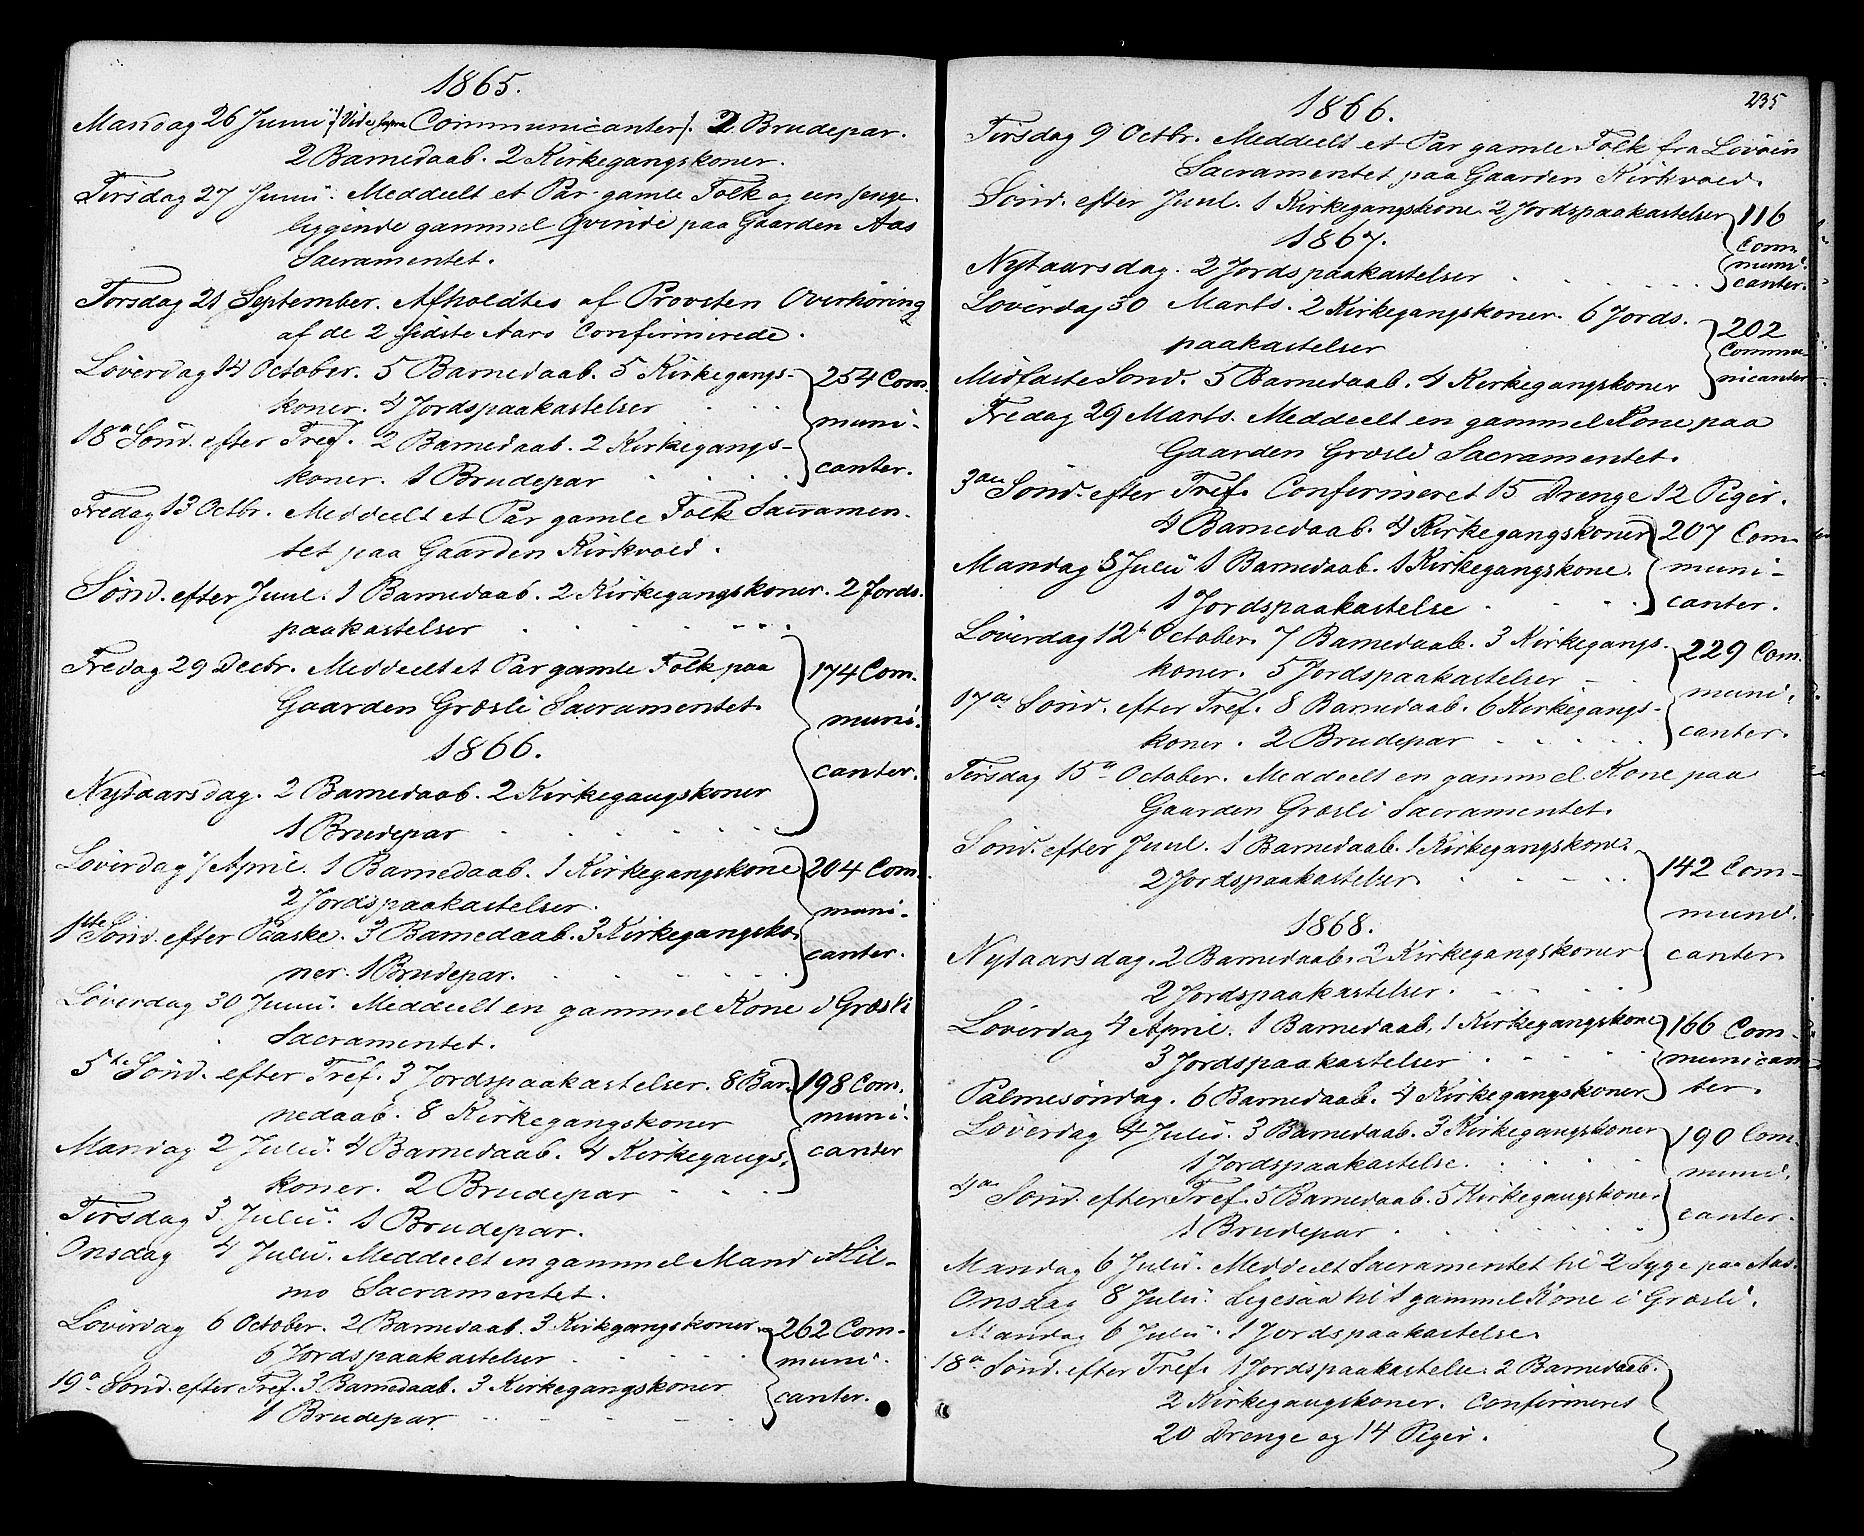 1865.
Mandag 26 Junii /: Vide supra Communicanter/. 2 Brudepar.
2 Barnedaab. 2 Kirkegangskoner.
Tirsdag 27 Junii. Meddeelt et Par gamle Folk og een senge-
liggende gammel Qvinde paa Gaarden Aas
Sacramentet.
Torsdag 21 September. Afholdtes af Provsten Overhøring
af de 2 sidste Aars Confirmerede.
Løverdag 14 October. 5 Barnedaab. 5 Kirkegangs-
koner. 4 Jordspaakastelser
254 Com-
muni-
canter.
18de Sønd. efter Tref. 2 Barnedaab. 2 Kirkegangs-
koner. 1 Brudepar
Fredag 13 Octbr. Meddeelt et Par gamle Folk Sacramen-
tet paa Gaarden Kirkvold.
Sønd. efter Juul. 1 Barnedaab. 2 Kirkegangskoner. 2 Jords-
paakastelser
Fredag 29 Decbr. Meddeelt et Par gamle Folk paa
Gaarden Græsli Sacramentet.
174 Com-
muni-
canter.
1866.
Nytaarsdag. 2 Barnedaab. 2 Kirkegangskoner
1 Brudepar
Løverdag 7 April. 1 Barnedaab. 1 Kirkegangskone
2 Jordspaakastelser.
204 Com-
muni-
canter.
1ste Sønd. efter Paaske. 3 Barnedaab. 3 Kirkegangsko-
ner. 1 Brudepar.
Løverdag 30 Junii. Meddeelt en gammel Kone i Græsli
Sacramentet.
5te Sønd. efter Tref. 3 Jordspaakastelser. 8 Bar-
nedaab. 8 Kirkegangskoner
198 Com-
muni-
canter
Mandag 2 Julii. 4 Barnedaab. 4 Kirkegangs-
koner. 2 Brudepar
Tirsdag 3 Julii. 1 Brudepar.
Onsdag 4 Julii. Meddeelt en gammel Mand i Hil-
mo Sacramentet.
Løverdag 6 October. 2 Barnedaab. 3 Kirkegangskoner
6 Jordspaakastelser
262 Com-
muni-
canter.
19de Sønd. efter Tref. 3 Barnedaab. 3 Kirkegangskoner
1 Brudepar
235
1866.
Tirsdag 9 Octbr. Meddeelt et Par gamle Folk fra Løvøen
Sacramentet paa Gaarden Kirkvold.
Sønd. efter Juul. 1 Kirkegangskone. 2 Jordspaakastelser
116
Com-
muni-
canter.
1867.
Nytaarsdag. 2 Jordspaakastelser
Løverdag 30 Marts. 2 Kirkegangskoner. 6 Jords-
paakastelser
202
Commu-
nicanter
Midfaste Sønd. 5 Barnedaab. 4 Kirkegangskoner
Fredag 29 Marts. Meddeelt en gammel Kone paa
Gaarden Græsli Sacramentet.
3die Sønd. efter Tref. Confirmeret 15 Drenge 12 Piger.
4 Barnedaab. 4 Kirkegangskoner
207 Com-
muni-
canter.
Mandag 8 Julii 1 Barnedaab. 1 Kirkegangskone.
1 Jordspaakastelse
Løverdag 12te October. 7 Barnedaab. 3 Kirkegangs-
koner. 5 Jordspaakastelser
229 Com-
muni-
canter.
17de Sønd. efter Tref. 8 Barnedaab. 6 Kirkegangs-
koner. 2 Brudepar
Tirsdag 15de October. Meddeelt en gammel Kone paa
Gaarden Græsli Sacramentet.
Sønd. efter Juul. 1 Barnedaab. 1 Kirkegangskone.
2 Jordspaakastelser.
142 Com-
muni-
canter
1868.
Nytaarsdag. 2 Barnedaab. 2 Kirkegangskoner
2 Jordspaakastelser.
Løverdag 4 April. 1 Barnedaab. 1 Kirkegangskone
3 Jordspaakastelser
166 Com-
munican-
ter.
Palmesøndag. 6 Barnedaab. 4 Kirkegangskoner
Løverdag 4 Julii. 3 Barnedaab. 3 Kirkegangskoner
1 Jordspaakastelse.
190 Com-
muni-
canter.
4de Sønd. efter Tref. 5 Barnedaab. 5 Kirkegangskoner
1 Brudepar
Mandag 6 Julii. Meddeelt Sacramentet til 2 Syge paa Aas.
Onsdag 8 Julii. Ligesaa til 1 gammel Kone i Græsli.
Mandag 6 Julii. 1 Jordspaakastelse.
18de Sønd. efter Tref. 1 Jordspaakastelse. 2 Barnedaab.
2 Kirkegangskoner. Confirmeret
20 Drenge og 14 Piger.